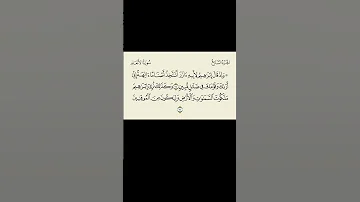 سُورَةُ الأَنْعَام
الجُزْءُ السَّابِعُ
۞ وَإِذْ قَالَ إِبْرَٰهِيمُ لِأَبِيهِ ءَازَرَ أَتَتَّخِذُ أَصْنَامًا ءَالِهَةً إِنِّىٓ
أَرَىٰكَ وَقَوْمَكَ فِى ضَلَٰلٍ مُّبِينٍ ٧٤ وَكَذَٰلِكَ نُرِىٓ إِبْرَٰهِيمَ
مَلَكُوتَ ٱلسَّمَٰوَٰتِ وَٱلْأَرْضِ وَلِيَكُونَ مِنَ ٱلْمُوقِنِينَ
٧٥